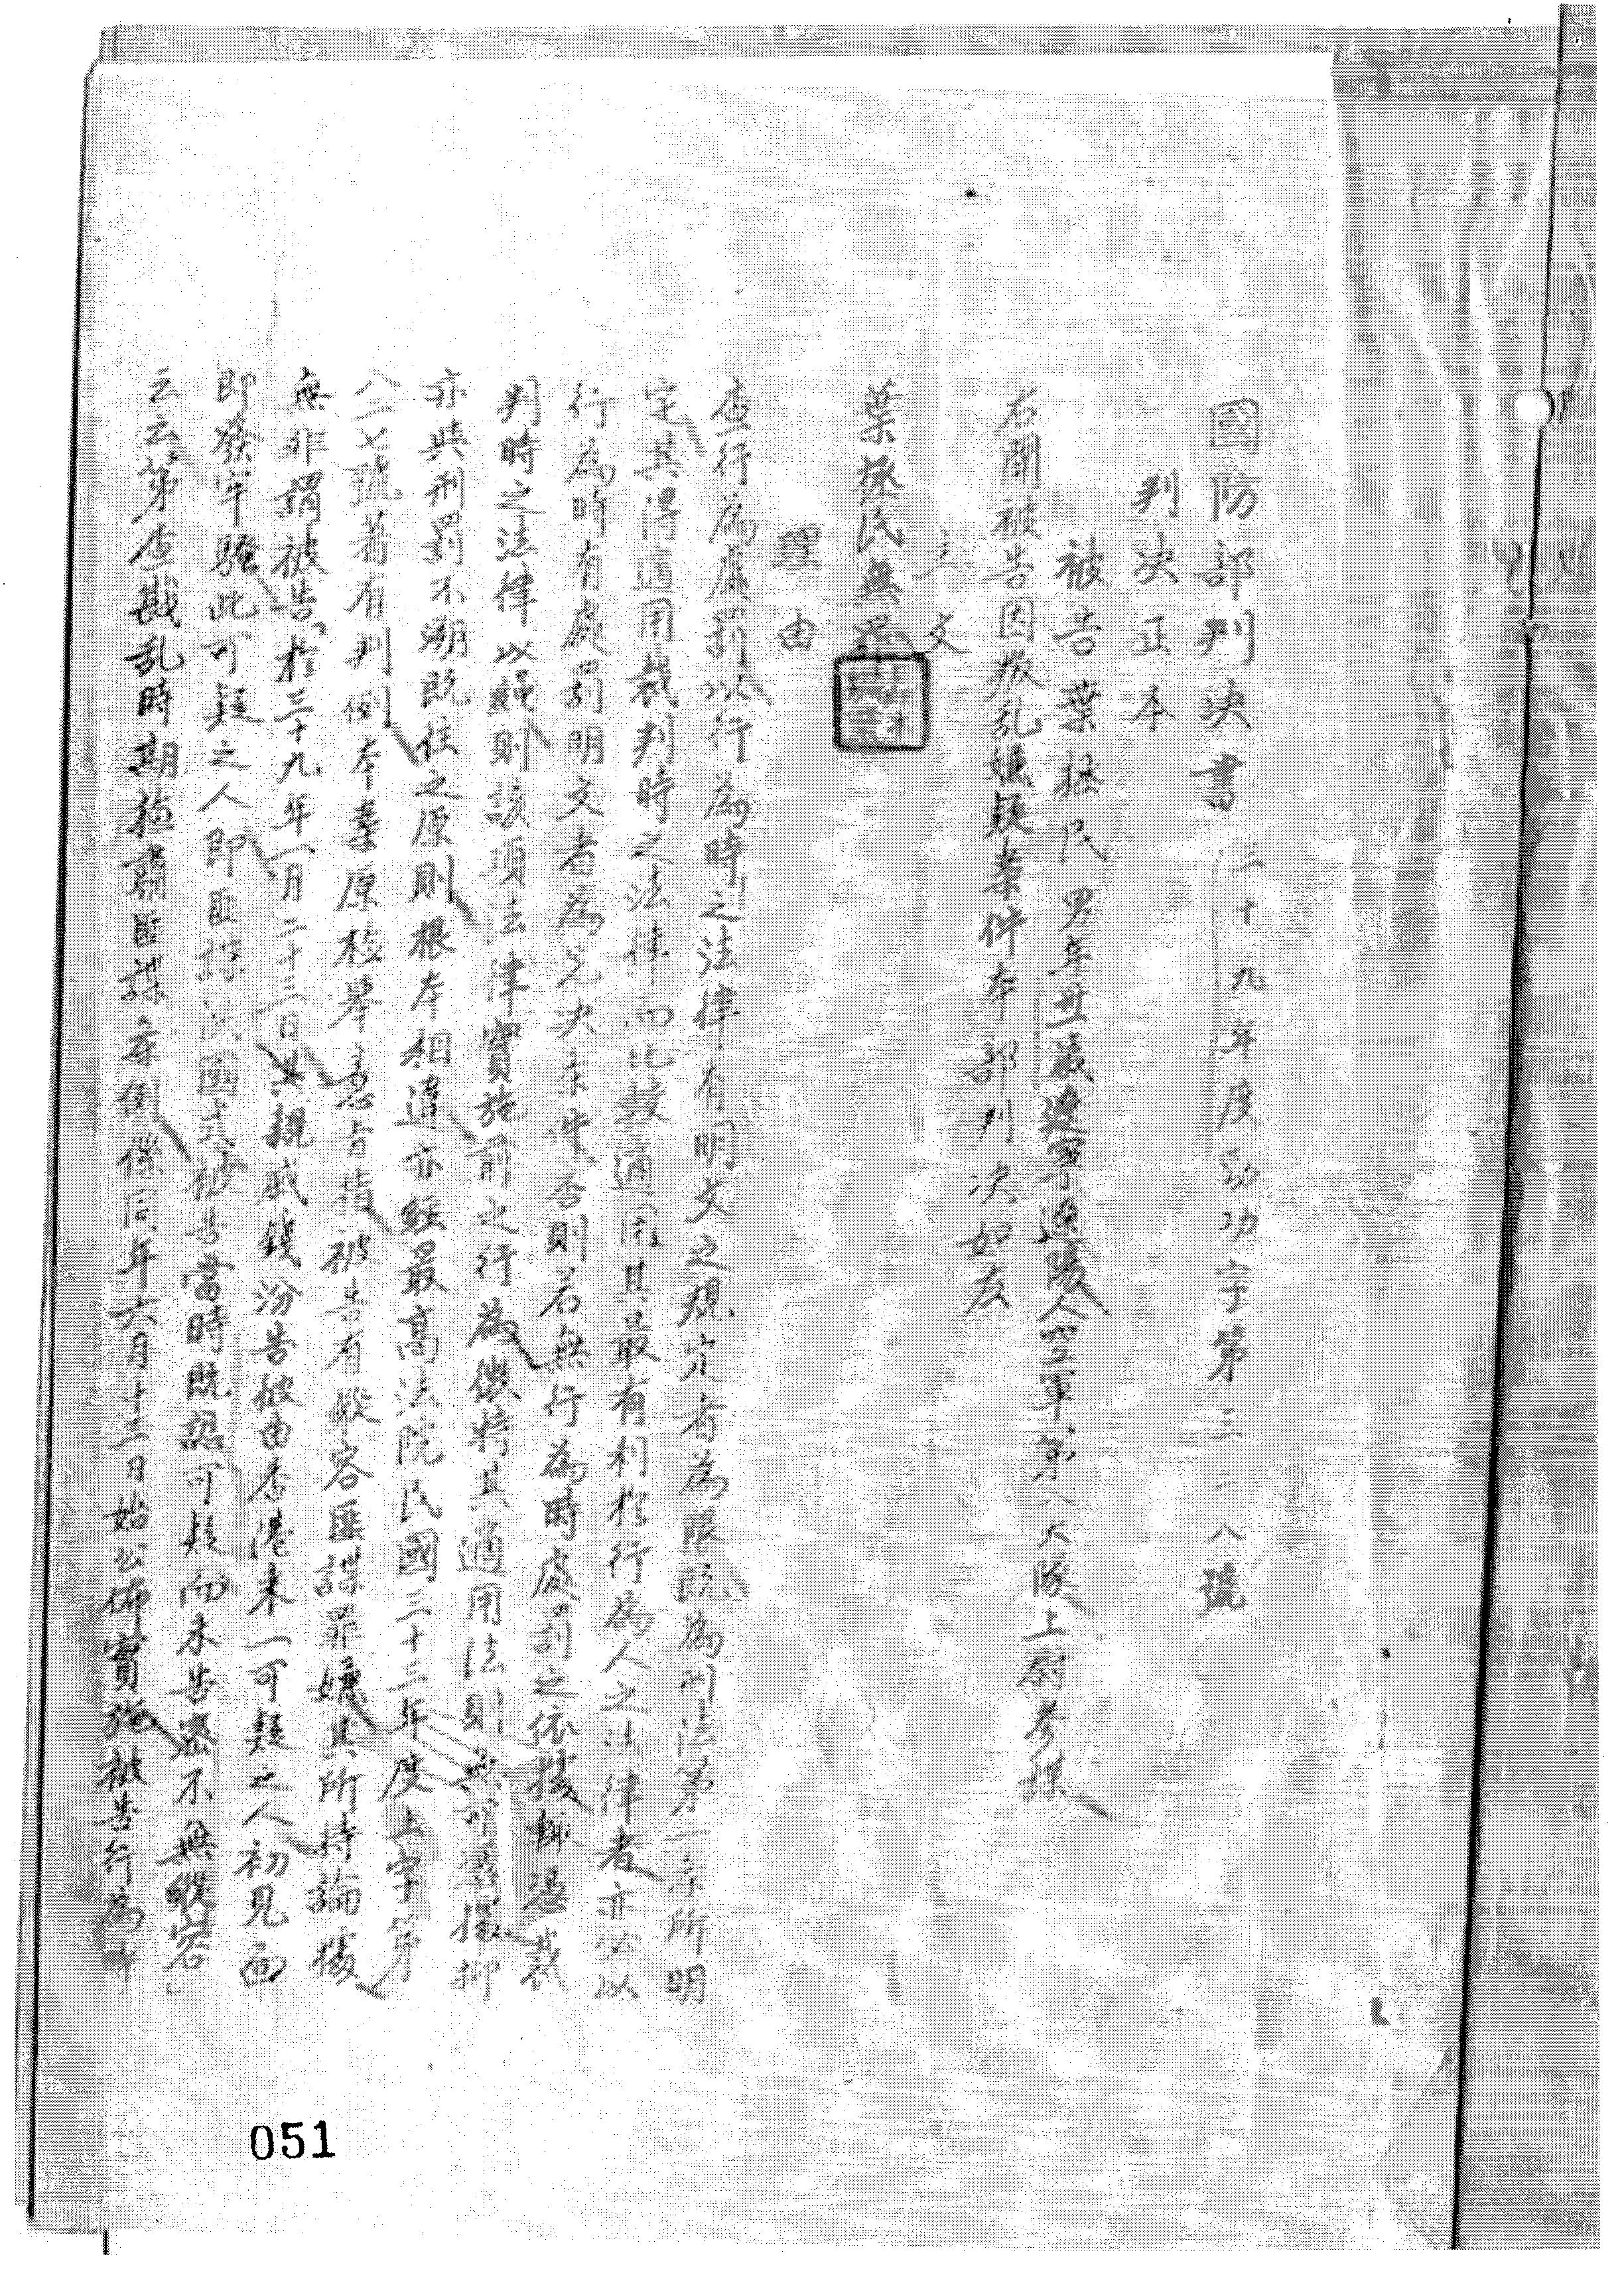 國防部判決書 三十九年度勁功字第三二八號
判決正本
被告葉拯民 男年卅歲遼寧遼陽人空軍第八大隊上尉參謀
右開被告因叛乱嫌疑案件本部判決如左
主文
葉拯民無罪
理由
查行為處罰以行為時之法律有明文之規定者為限既為刑法第一條所明
定其得適用裁判時之法律而比較適用其最有利於行為人之法律者亦必以
行為時有處罰明文者為先決條件否則若無行為時處罰之依據輒憑裁
判時之法律以繩則該項法律實施前之行為儌特其適用法則無所遵據抑
亦與刑罰不溯既往之原則根本相違亦經最高法院民國三十三年度上字第
八一七號著有判例本案原檢舉意旨指被告有縱容匪諜罪嫌其所持論據
無非謂被告於三十九年一月二十三日其親戚錢汾告彼由香港來一可疑之人初見面
即發牢騷此可疑之人即匪諜洪國式被告當時既認可疑而未告密不無縱容
云云第查戡乱時期檢肅匪諜條例係同年六月十三日始公佈實施被告行為
051